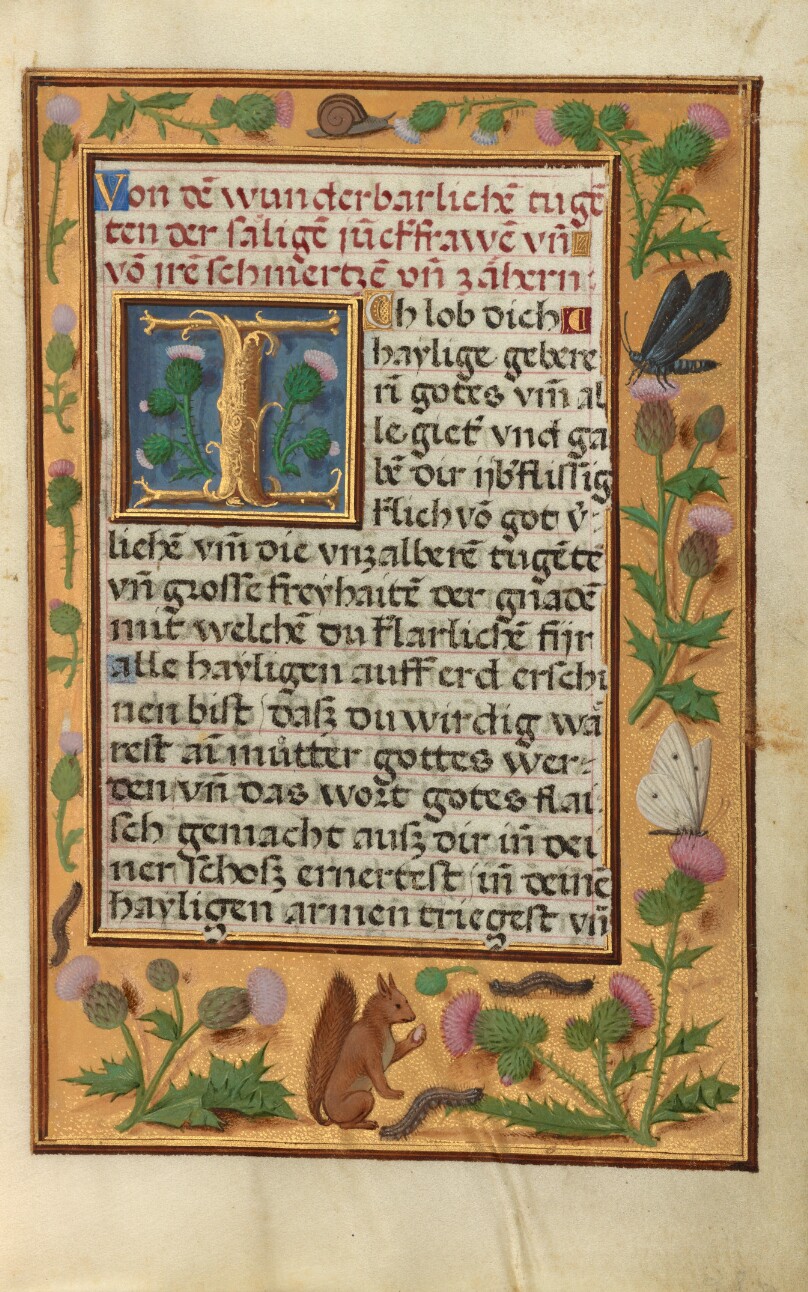 Von dē wunderbarlichē tugē
ten der sälige̅ jūckfrawē vn̄
vō jrē schmertzē vn̄ zähern:
I Ch lob dich
haylige gebere
rī gotes vm̄ al
le giet vnd ga
bē dir
klich vō got v̄
lichē vm̄ die vnzalberē tugētē
vn̄ grosse freyhaitē der gnadē
mit welchē du klarlichē fijr
alle hayligen auff erd erschi
nen bist daß du wirdig wä
rest ai můtter gottes wer-
den vn̄ das wort gotes flai
sch gemacht auß dir in̄ dei
ner schoß ernertest in̄ deinē
hayligen armen triegest vn̄